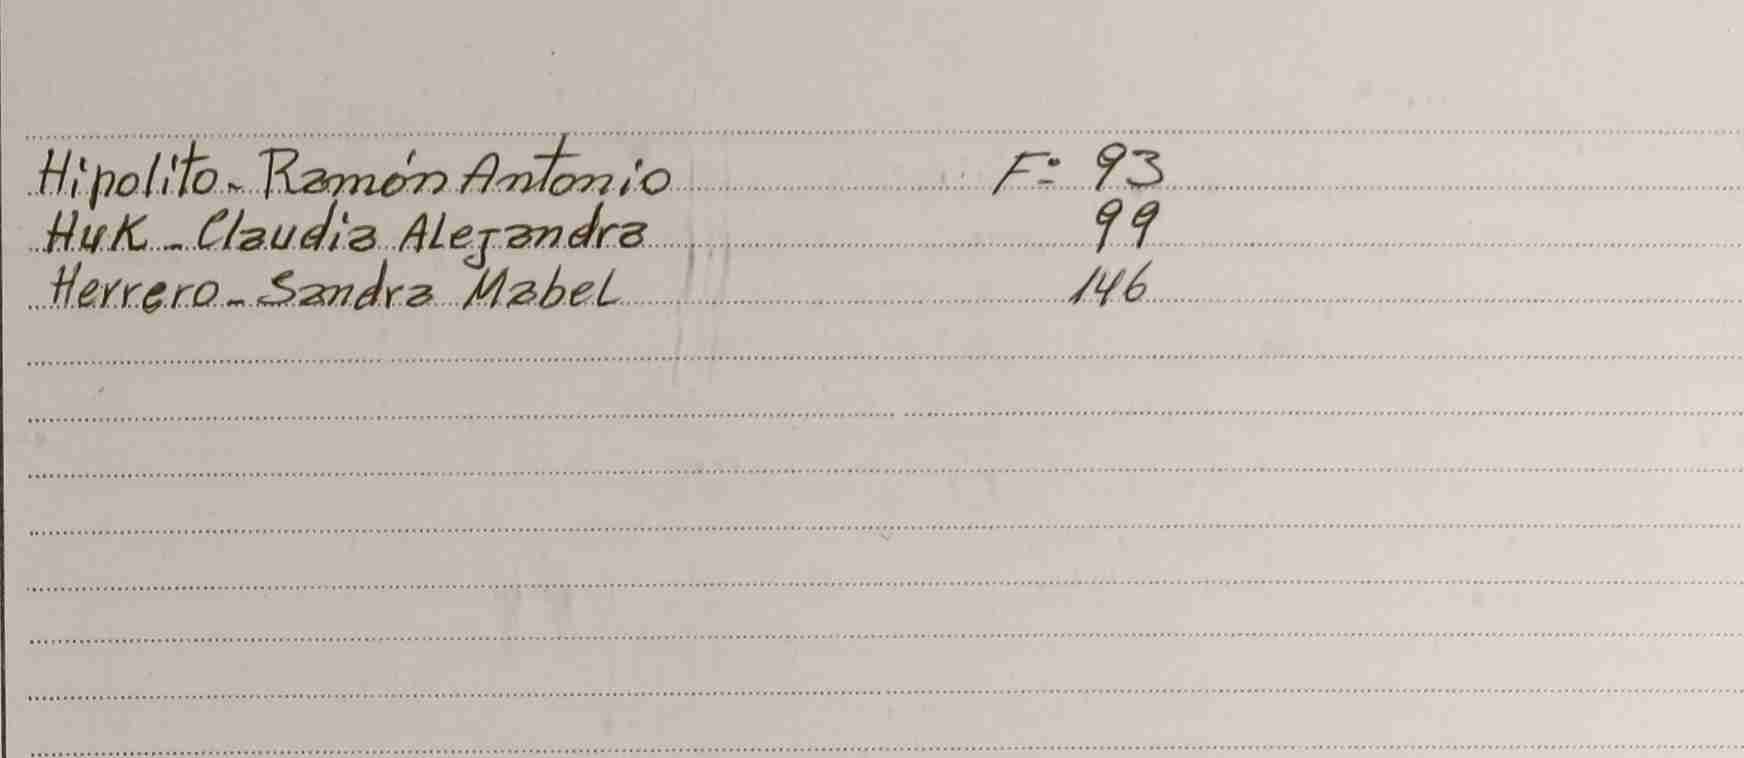 Hipolito - Ramón Antonio F: 93
Huk - Claudia Alejandra 99
Herrero - Sandra Mabel 146